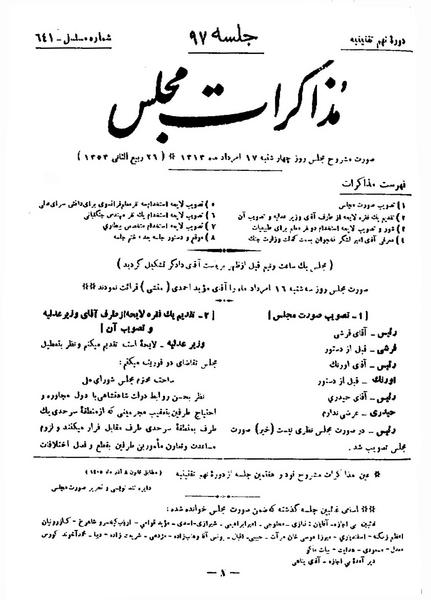 دورهٔ نهم تقنینیه
جلسه ۹۷
شماره مسلسل - ۶۴۱
مذاکرات مجلس
صورت مشروح مجلس روز چهارشنبه ۱۷ امرداد ماه ۱۳۱۳ * (۲۶ ربیع الثانی ۱۳۵۳)
فهرست مذاکرات
۱) تصویب صورت مجلس
۲) تقدیم یک فقره لایحه از طرف آقای وزیر عدلیه و تصویب آن
۳) شور و تصویب لایحه استخدام دو نفر معلم برای طبیعیات
۴) معرفی آقای امیر لشکر نخجوان بسمت کفالت وزارت جنگ
۵) تصویب لایحه استخدام سه نفر معلم فرانسوی برای دانش سرای عالی
۶) تصویب لایحه استخدام یک نفر مهندس جنگلبانی
۷) تصویب لایحه استخدام متخصص بیطاری
۸) موقع و دستور جلسه بعد - ختم جلسه
(مجلس یک ساعت و نیم قبل از ظهر بریاست آقای دادگر تشکیل گردید)
صورت مجلس روز سه شنبه ۱۶ امرداد ماه را آقای مؤید احمدی (منشی) قرائت نمودند
[۱- تصویب صورت مجلس]
رئیس - آقای فرشی
فرشی - قبل از دستور
رئیس - آقای اورنگ
اورنگ - قبل از دستور
رئیس - آقای حیدری
حیدری - عرضی ندارم
رئیس - در صورت مجلس نظری نیست (خیر) صورت
مجلس تصویب شد.
[۲- تقدیم یک فقره لایحه از طرف آقای وزیر عدلیه
و تصویب آن]
وزیر عدلیه - لایحهٔ است تقدیم میکنم و نظر بتعطیل
مجلس تقاضای دو فوریت میکنم:
ساحت محترم مجلس شورای ملی
نظر بحسن روابط دولت شاهنشاهی با دول مجاوره و
احتیاج طرفین بتعقیب مجرمینی که از منطقهٔ سرحدی یک
طرف بمنطقهٔ سرحدی طرف مقابل فرار میکنند و لزوم
مساعدت وتعاون مأمورین طرفین بقطع و فصل اختلافات
* عین مذاکرات مشروح نود و هفتمین جلسه از دورهٔ نهم تقنینیه
دایره تند نویسی و تحریر صورت مجلس
** اسامی غائبین جلسه گذشته که ضمن صورت مجلس خوانده شده:
دیر آمده بی اجازه - آقای پناهی
- ۱ -